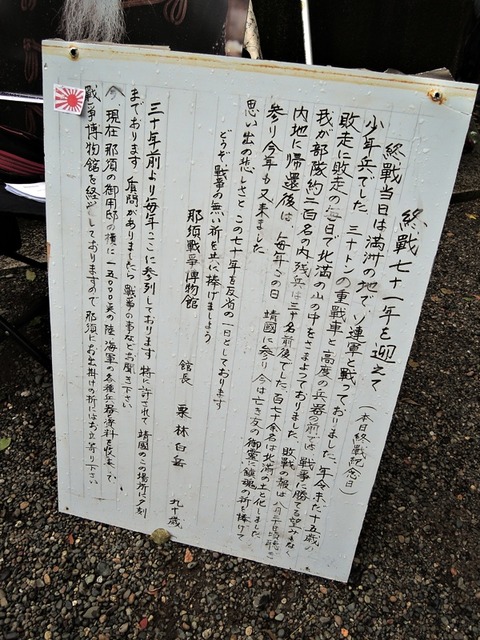 終戦七十一年を迎えて (本日終戦紀念日)
終戦当日は満洲の地でソ連軍と戦っておりました。年令未だ十五歳の
少年兵でした。三十トンの重戦車と高度の兵器の前では戦争に勝てる望みもなく
敗走に敗走の毎日で北満の山の中をさまよっておりました。敗戦の報は八月三十日頃聴き
我が部隊約二百名の内残兵は三十名前後でした。百七十余名は北満の土と化しました
内地に帰還後は毎年この日 靖國に参り今は亡き友の御霊に鎮魂の祈を捧げて
参り今年も又来ました
思い出の悲しさとこの七十年を反省の一日としております
どうぞ戦争の無い祈を共に捧げましょう
那須戦争博物館 館長 栗林白岳 九十歳
三十年前より毎年ここに参列しております 特に許されて靖國のこの場所に夕刻
まであります 質問がありましたら戦争の事などお聞き下さい
現在那須の御用邸の横に一五〇〇〇点の陸海軍の各種兵器資料を収集して
戦争博物館を経営しておりますので那須にお出掛けの折にはお立寄り下さい